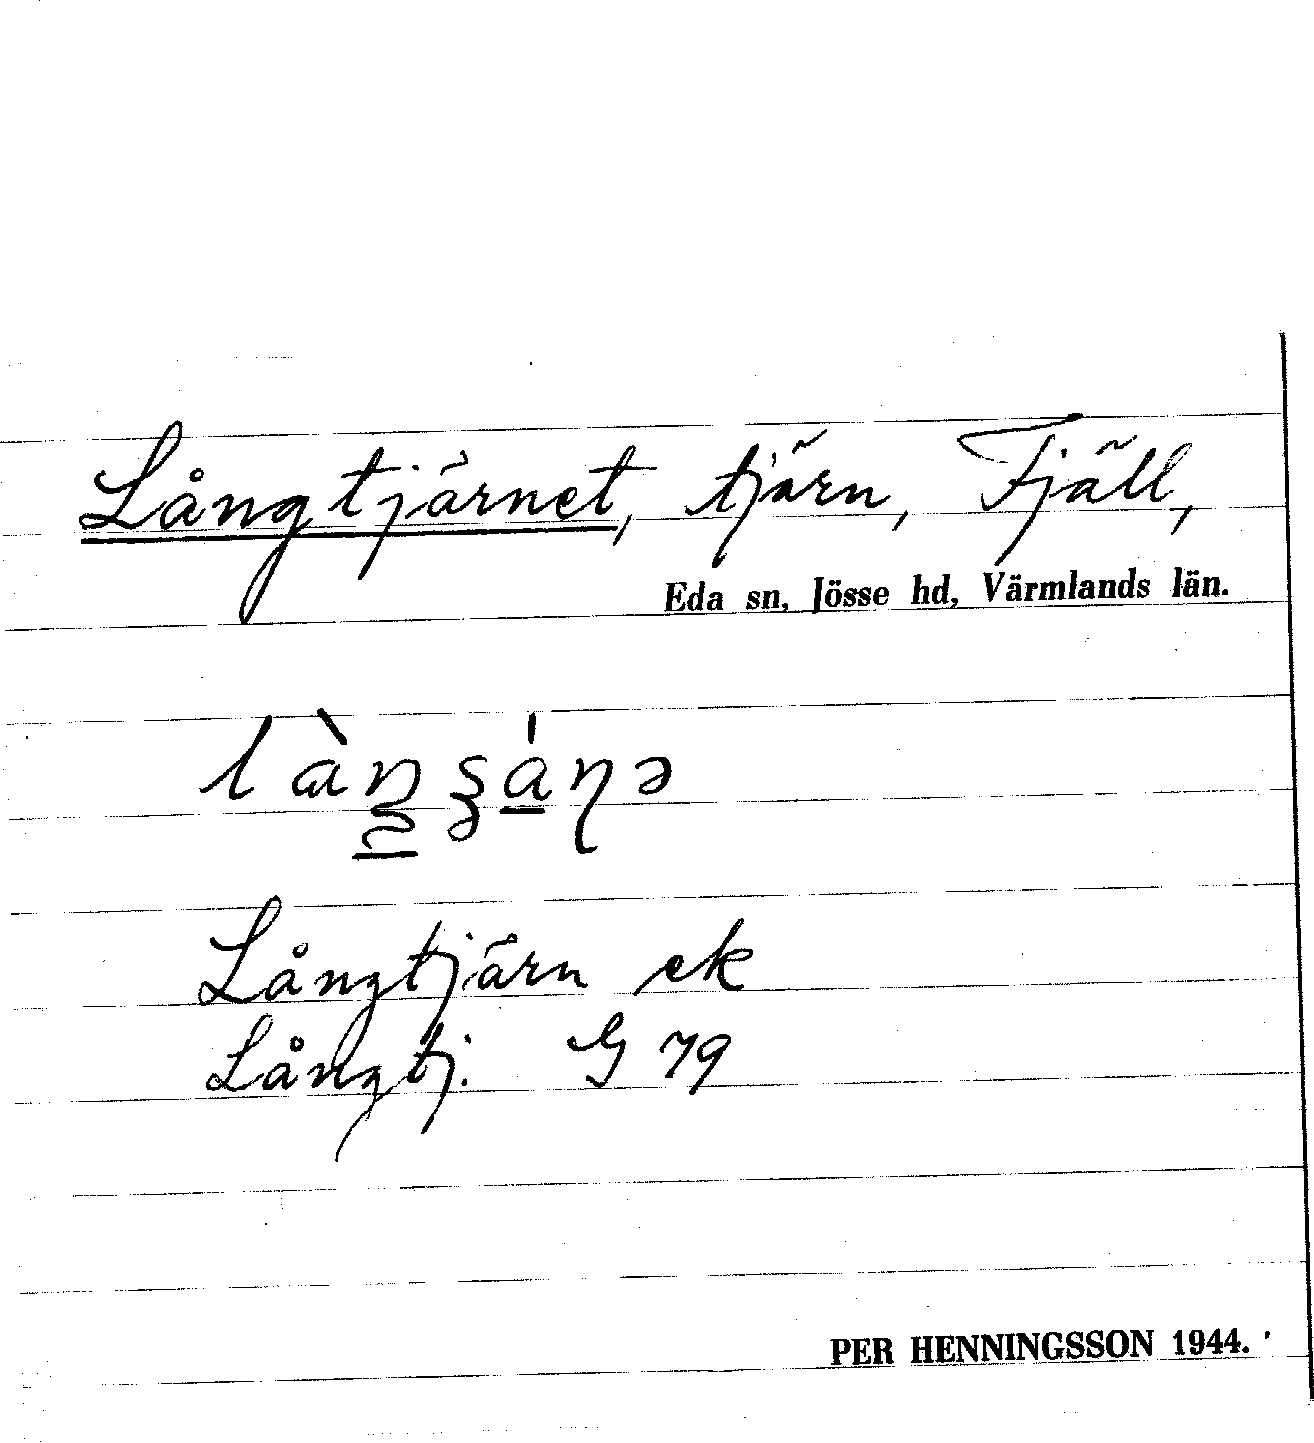 Långtjärnet, tjärn, Fjäll,
Eda sn, Jösse hd, Värmlands län.
Långtjärn ek
Långtj. G 79
PER HENNINGSSON 1944.